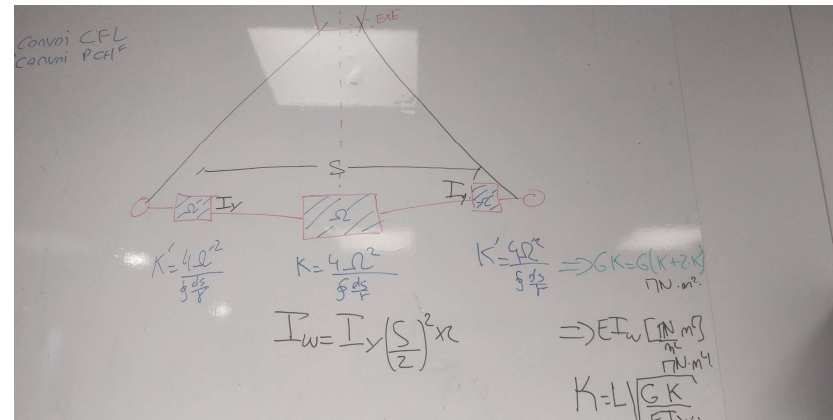 EXE
Convoi CFL
Convoi PCH
S
Ω' I_y Ω I_y Ω'
K' = 4Ω'² / ∮ ds/r K = 4Ω² / ∮ ds/r K' = 4Ω'² / ∮ ds/r ⇒ GK = G(K+2K)
MN·m²
I_w = I_y (S/2)² x2 ⇒ EI_w [MN/m² m⁶]
MN·m⁴
K = L√(GK / EI_w)